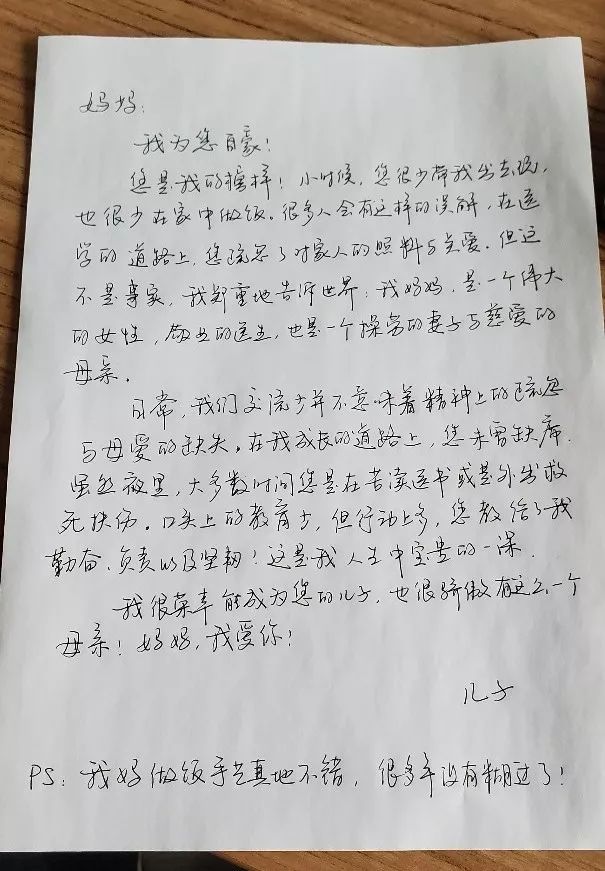 妈妈：
我为您自豪！
您是我的榜样！小时候，您很少带我出去玩，
也很少在家中做饭。很多人会有这样的误解，在医
学的道路上，您疏忽了对家人的照料与关爱。但这
不是事实，我郑重地告诉世界：我妈妈，是一个伟大
的女性，敬业的医生，也是一个操劳的妻子与慈爱的
母亲。
日常，我们交流少并不意味着精神上的疏忽
与母爱的缺失。在我成长的道路上，您未曾缺席。
虽然夜里，大多数时间您是在苦读医书或是外出救
死扶伤。口头上的教育少，但行动上多，您教给了我
勤奋、负责以及坚韧！这是我人生中宝贵的一课。
我很荣幸能成为您的儿子，也很骄傲有这么一个
母亲！妈妈，我爱你！
儿子
PS：我妈做饭手艺真地不错，很多年没有糊过了！